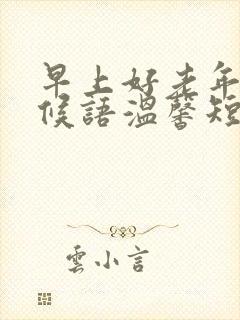 早上好老年
候語溫馨短
雲小言